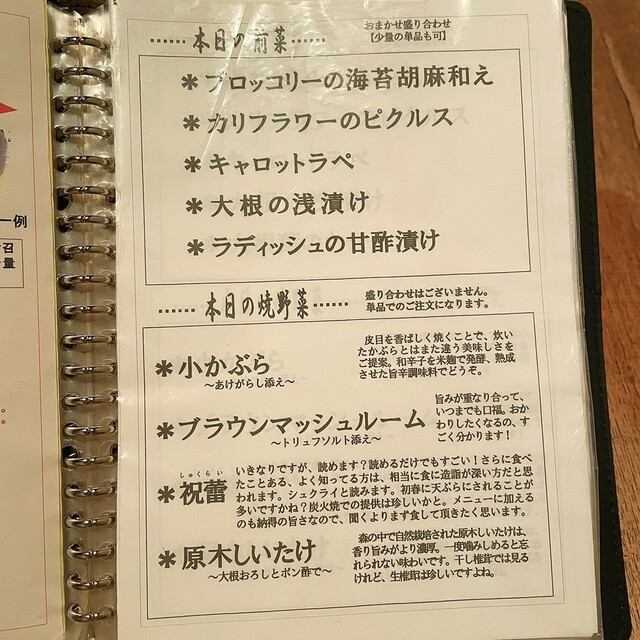 ……本日の前菜……
おまかせ盛り合わせ
【少量の単品も可】
＊ブロッコリーの海苔胡麻和え
＊カリフラワーのピクルス
＊キャロットラペ
＊大根の浅漬け
＊ラディッシュの甘酢漬け
……本日の焼野菜……
盛り合わせはございません。
単品でのご注文になります。
＊小かぶら
～あけがらし添え～
皮目を香ばしく焼くことで、炊い
たかぶらとはまた違う美味しさを
ご提案。和辛子を米麹で発酵、熟成
させた旨辛調味料でどうぞ。
＊ブラウンマッシュルーム
～トリュフソルト添え～
旨みが重なり合って、
いつまでも口福。おか
わりしたくなるの、す
ごく分かります！
しゅくらい
＊祝蕾
いきなりですが、読めます？読めるだけでもすごい！さらに食べ
たことある、よく知ってる方は、相当に食に造詣が深い方だと思
われます。シュクライと読みます。初春に天ぷらにされることが
多いですかね？炭火焼での提供は珍しいかと。メニューに加える
のも納得の旨さなので、聞くよりまず食して頂きたく思います。
＊原木しいたけ
～大根おろしとポン酢で～
森の中で自然栽培された原木しいたけは、
香り旨みがより濃厚。一度噛みしめると忘
れられない味わいです。干し椎茸では見る
けれど、生椎茸は珍しいですよね。
一例
召
量